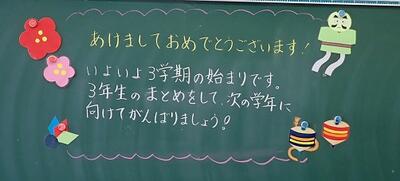 あけましておめでとうございます!
いよいよ3学期の始まりです。
3年生のまとめをして、次の学年に
向けてがんばりましょう!